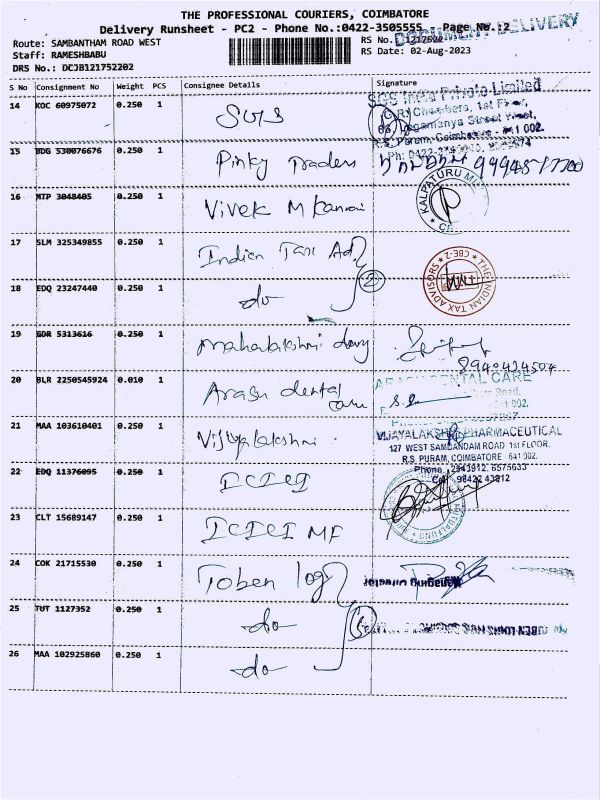 THE PROFESSIONAL COURIERS, COIMBATORE
Delivery Runsheet - PC2 - Phone No.:0422-3505555 - Page No.:2
DOCUMENT DELIVERY
Route: SAMBANTHAM ROAD WEST
Staff: RAMESHBABU
DRS No.: DCJB121752202
RS No.: 1217522
RS Date: 02-Aug-2023
S No Consignment No Weight PCS Consignee Details Signature
14 KOC 60975072 0.250 1 SGS
SGS India Private Limited
Chambers, 1st Floor,
R.S. Puram, Coimbatore - 641 002.
15 BDG 530076676 0.250 1 Pinky Traders
16 MTP 3048405 0.250 1 Vivek M
KALPATURU
17 SLM 325349855 0.250 1 Indian Tax Ad
THE INDIAN TAX ADVISORS * CBE-2 *
18 EDQ 23247440 0.250 1 do 2
19 GDR 5313616 0.250 1 Mahalakshmi
8940424504
20 BLR 2250545924 0.010 1 Arasu dental care
ARASU DENTAL CARE
21 MAA 103610401 0.250 1 Vijyalakshmi
VIJAYALAKSHMI PHARMACEUTICAL
127 WEST SAMBANDAM ROAD 1st FLOOR,
R.S. PURAM, COIMBATORE - 641 002.
Phone : 2543912, 6575633
Cell : 98422 43912
22 EDQ 11376095 0.250 1 ICICI
23 CLT 15689147 0.250 1 ICICI MF
24 COK 21715530 0.250 1 Toben log
Managing Director
25 TUT 1127352 0.250 1 do
26 MAA 102925860 0.250 1 do